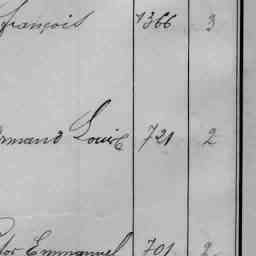 François 1366 3
Armand Louis 721 2
Emmanuel 701 2